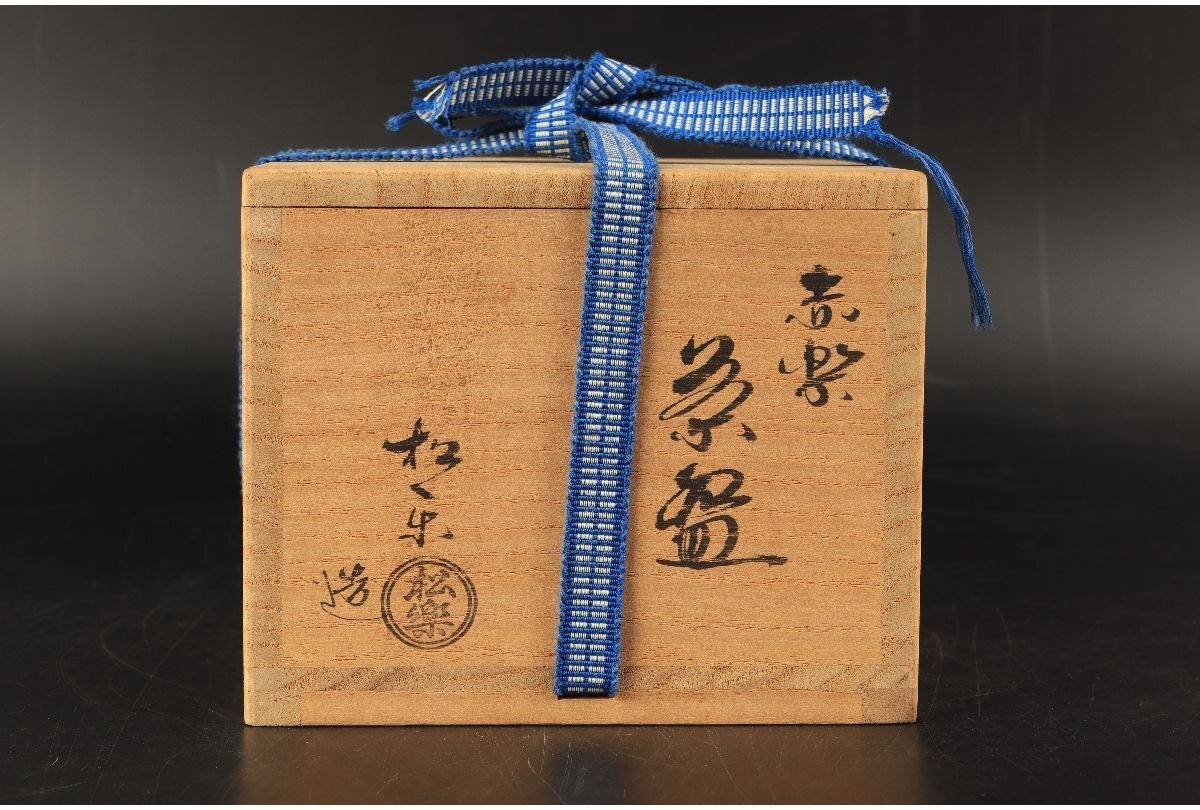 赤楽
茶盌
松楽
造
松樂